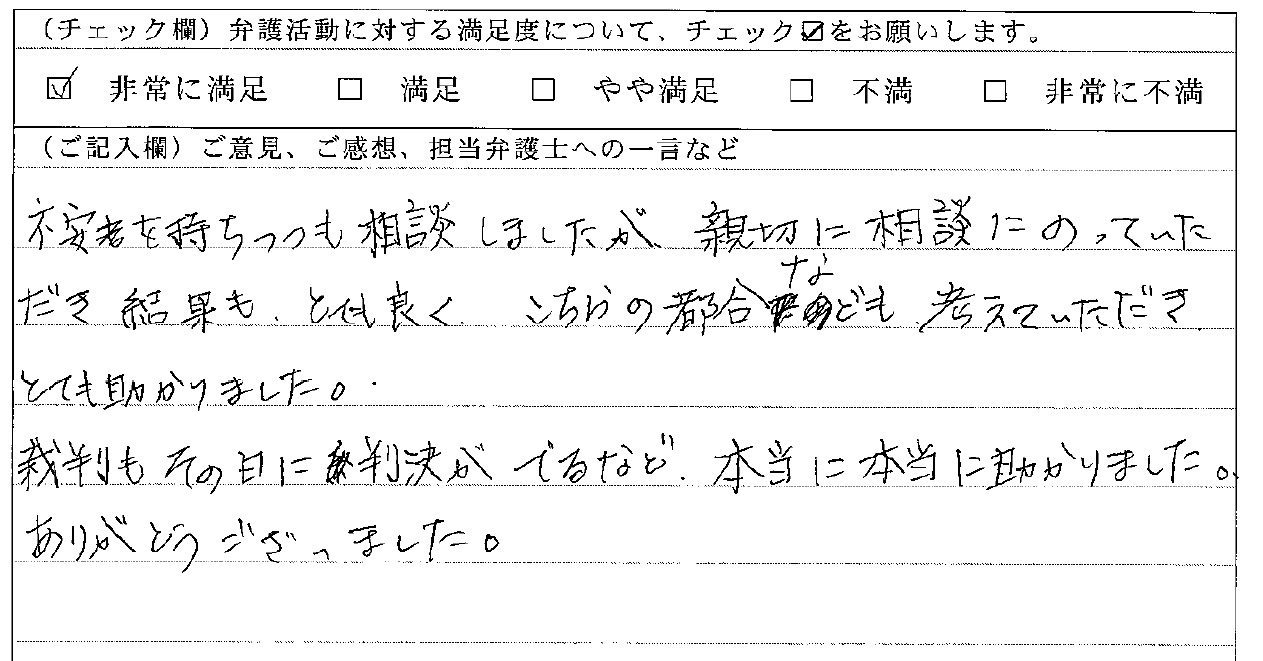 (チェック欄)弁護活動に対する満足度について、チェック☑をお願いします。
☑ 非常に満足 □ 満足 □ やや満足 □ 不満 □ 非常に不満
(ご記入欄)ご意見、ご感想、担当弁護士への一言など
不安を持ちつつも相談しましたが、親切に相談にのっていた
だき結果も、とても良く、こちらの都合なども考えていただき
とても助かりました。
裁判もその日に判決がでるなど、本当に本当に助かりました。
ありがとうございました。